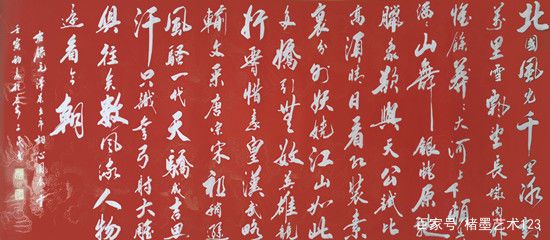 北国风光千里冰封
万里雪飘望长城内外
惟馀莽莽大河上下顿
滔山舞银蛇原驰
腊象欲与天公试比
高须晴日看红装素
裹分外妖娆江山如此
多娇引无数英雄竞
折腰惜秦皇汉武略
输文采唐宗宋祖稍逊
风骚一代天骄成吉思
汗只识弯弓射大雕
俱往矣数风流人物
还看今朝
百家号/楮墨艺术123